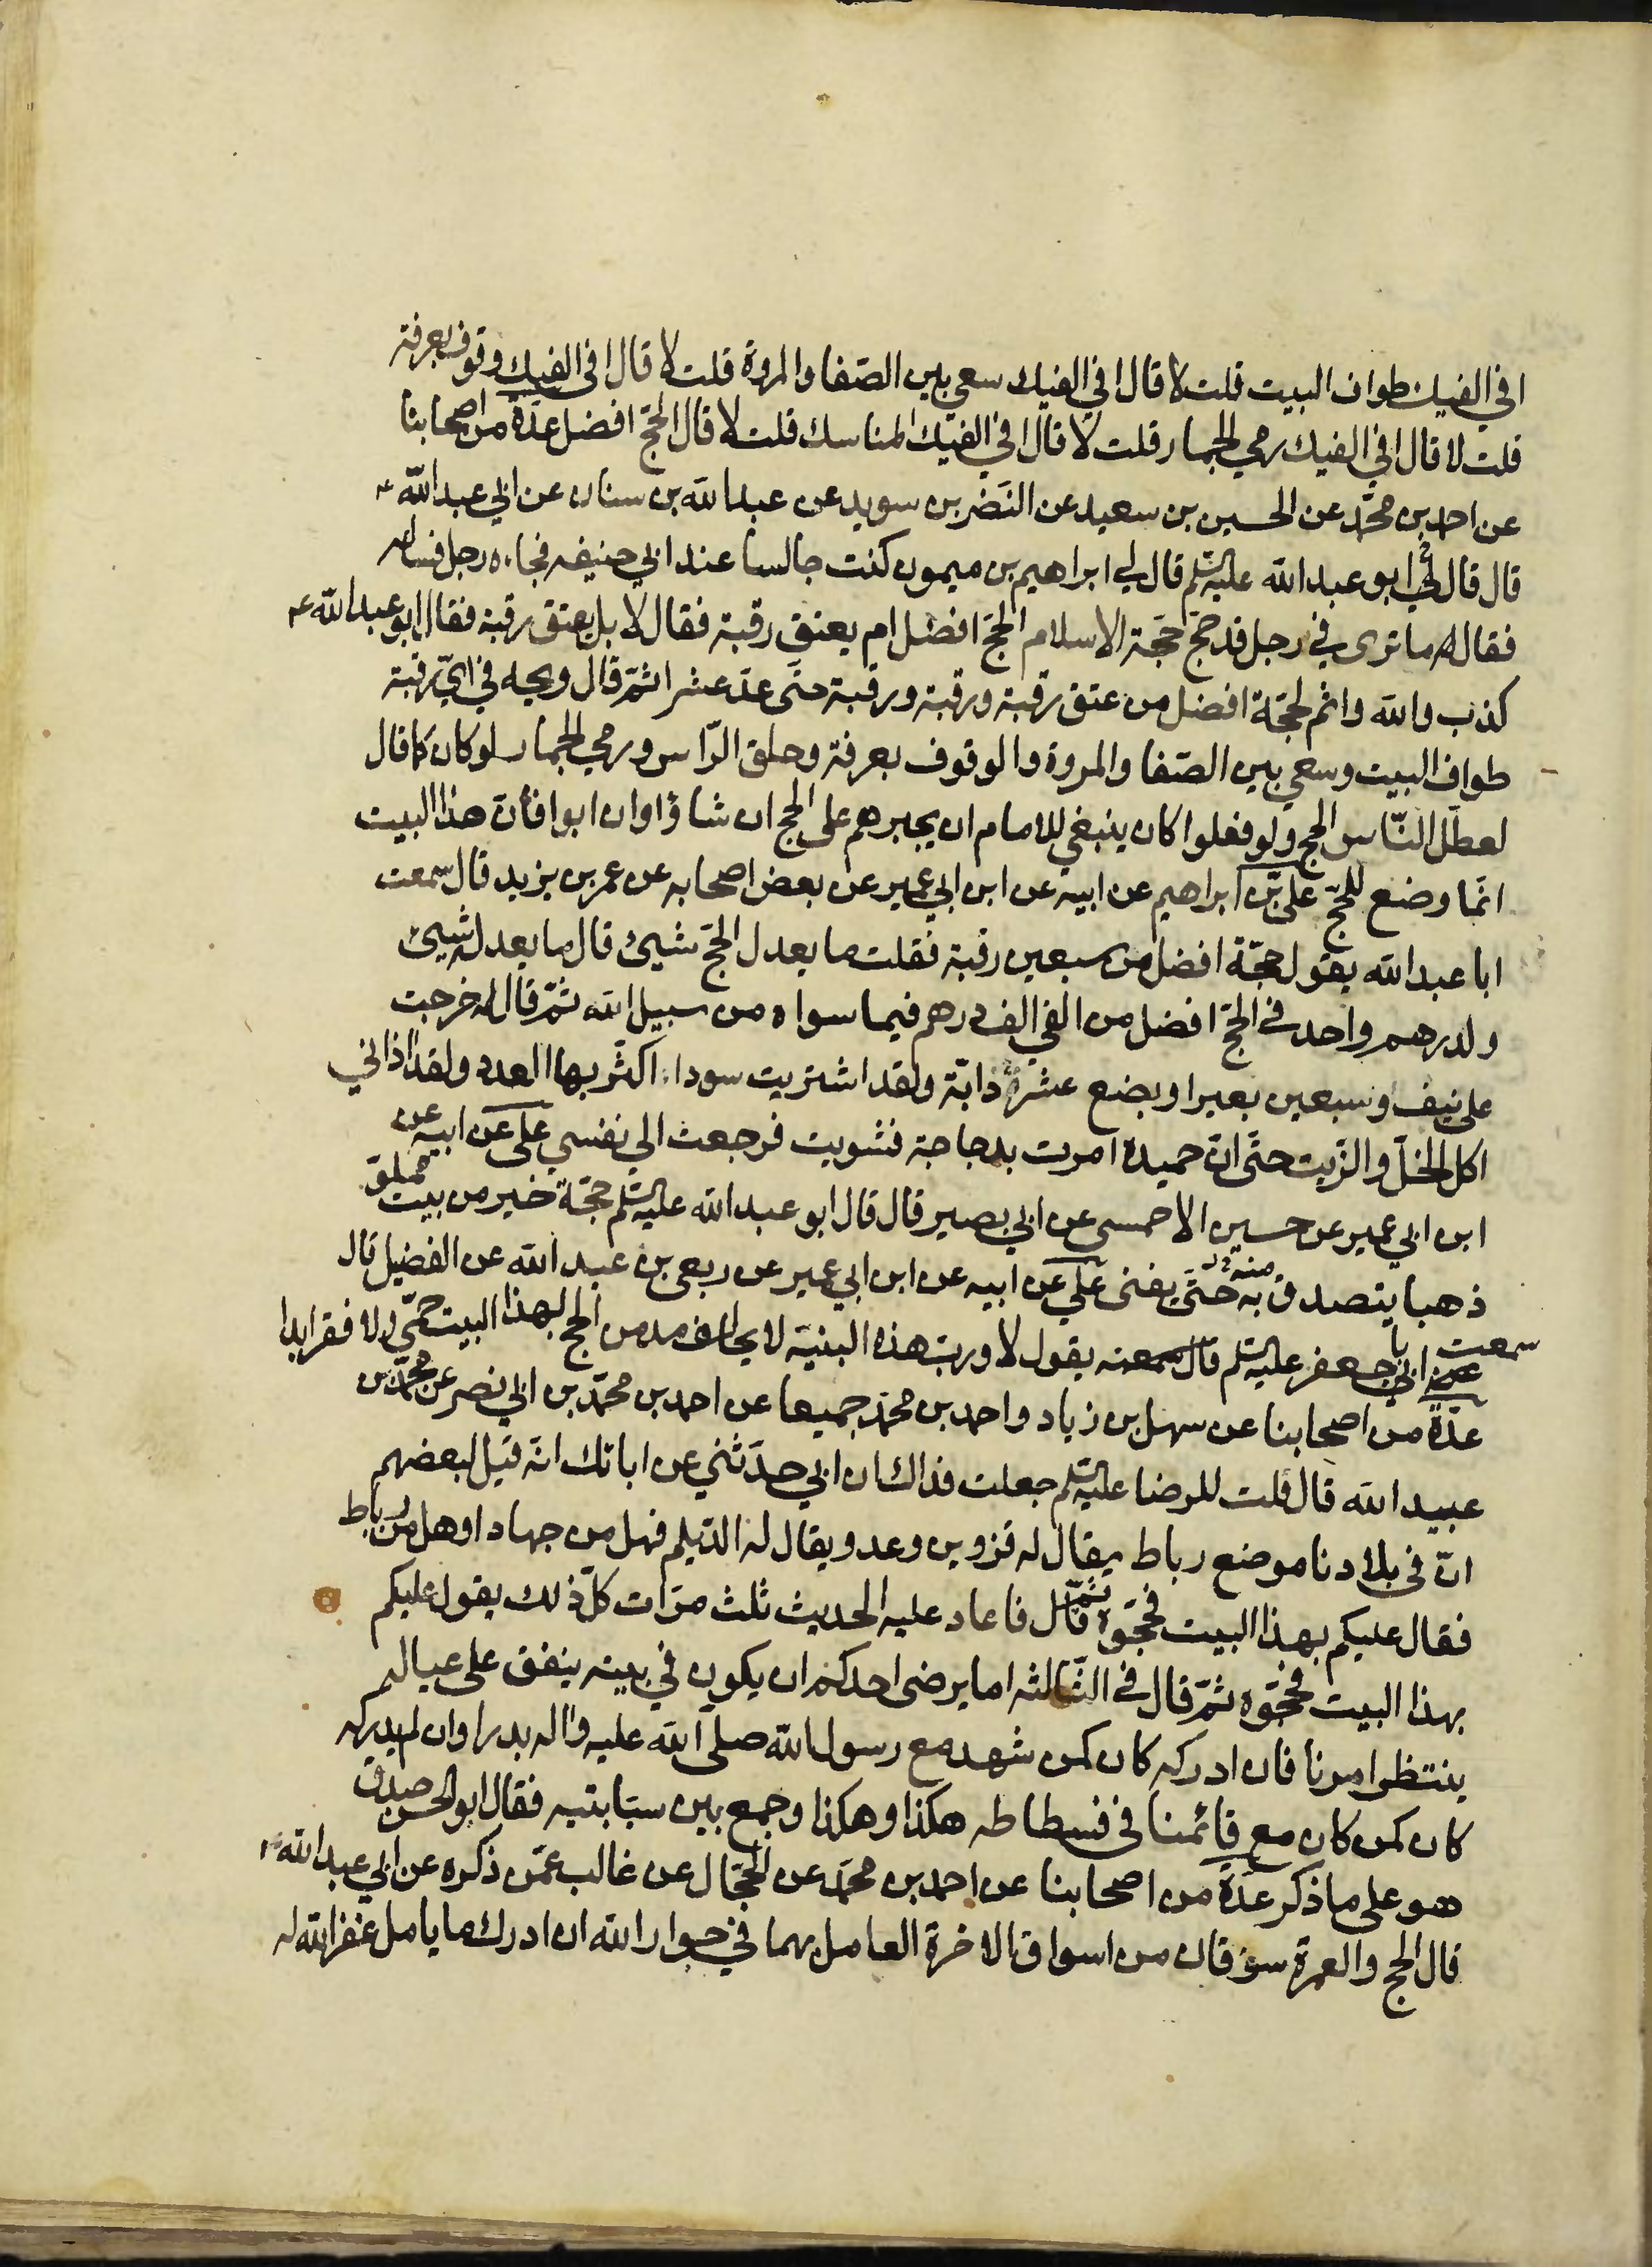 افي الفيك طواف البيت قلت لا قال افي الفيك سعي بين الصّفا والمروة قلت لا قال افي الفيك وقوف بعرفة
قلت لا قال افي الفيك رمي الجمار قلت لا قال افي الفيك المناسك قلت لا قال الحجّ افضل عدّة من اصحابنا
عن احمد بن محمّد عن الحسين بن سعيد عن النّضر بن سويد عن عبد الله بن سنان عن ابي عبد الله ع
قال قال لي ابو عبد الله عليه السلم قال لي ابراهيم بن ميمون كنت جالسا عند ابي حنيفه فجاءه رجل فساله
فقال له ما ترى في رجل قد حج حجّة الاسلام الحجّ افضل ام يعتق رقبة فقال لا بل يعتق رقبة فقال ابو عبد الله ع
كذب والله واثم لحجّة افضل من عتق رقبة ورقبة ورقبة حتّى عدّ عشرا ثمّ قال ويحه في ايّ رقبة
طواف البيت وسعي بين الصّفا والمروة والوقوف بعرفة وحلق الرّاس ورمي الجمار لو كان كما قال
لعطّل النّاس الحج ولو فعلوا كان ينبغي للامام ان يجبرهم على الحج ان شاؤا وان ابوا فانّ هذا البيت
انّما وضع للحجّ عليّ بن ابراهيم عن ابيه عن ابن ابي عمير عن بعض اصحابه عن عمر بن يزيد قال سمعت
ابا عبد الله يقول حجّة افضل من سبعين رقبة فقلت ما يعدل الحجّ شيئ قال ما يعدله شيئ
ولدرهم واحد في الحجّ افضل من الفي الف درهم فيما سواه من سبيل الله ثمّ قال له خرجت
على نيف وسبعين بعيرا وبضع عشرة دابّة ولقد اشتريت سودا اكثر بها العدد ولقد اذاني
اكل الخلّ والزّيت حتّى انّ حميدة امرت بدجاجة فشويت فرجعت الي نفسي علي عن ابيه عن
ابن ابي عمير عن حسين الاحمسى عن ابي بصير قال قال ابو عبد الله عليه السلم حجّة خير من بيت مملوّ
ذهبا يتصدق به منه حتّى يفنى علي عن ابيه عن ابن ابي عمير عن ربعى بن عبد الله عن الفضيل قال
سمعت ابا جعفر عليه السلم يقول لا وربّ هذه البنية لا يحالف مدمن الحج بهذا البيت حمّى ولا فقر ابدا
عدّة من اصحابنا عن سهل بن زياد واحمد بن محمّد جميعا عن احمد بن محمّد بن ابي نصر عن محمّد بن
عبيد الله قال قلت للرضا عليه السلم جعلت فداك ان ابي حدّثني عن ابائك انّه قيل لبعضهم
انّ في بلادنا موضع رباط يقال له قزوين وعدو يقال له الدّيلم فهل من جهاد او هل من رباط
فقال عليكم بهذا البيت فحجّوه ثمّ قال فاعاد عليه الحديث ثلث مرّات كلّ ذلك يقول عليكم
بهذا البيت فحجّوه ثمّ قال في الثّالثه اما يرضى احدكم ان يكون في بيته ينفق على عياله
ينتظر امرنا فان ادركه كان كمن شهد مع رسول الله صلى الله عليه واله بدرا وان لم يدركه
كان كمن كان مع قائمنا في فسطاطه هكذا وهكذا وجمع بين سبّابتيه فقال ابو الحسن صدق
هو على ما ذكر عدّة من اصحابنا عن احمد بن محمّد عن الحجّال عن غالب عمّن ذكره عن ابي عبد الله ع
قال الحج والعمرة سوقان من اسواق الاخرة العامل بهما في جوار الله ان ادرك ما يامل غفر الله له